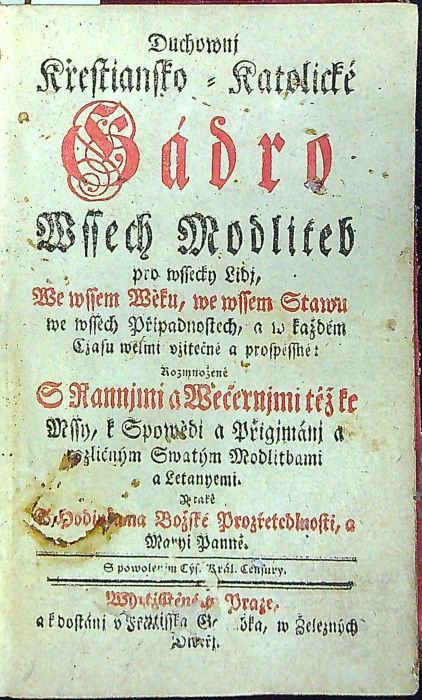 Duchownj
Křestiansko = Katolické
Gádro
Wssech Modliteb
pro wssecky Lidi,
We wssem Wěku, we wssem Stawu
we wssech Připadnostech, a w každém
Czasu welmi vžitečné a prospěssné:
Rozmnožené
S Rannjmi a Wečernjmi též ke
Mssy, k Spowědi a Přigjmánj a
rozličným Swatým Modlitbami
a Letanyemi.
A také
Božské Prozřetedlnosti, a
Maryi Panně.
S powolením Cýs. Král. Censury.
Praze,
a k dostánj v w Železných